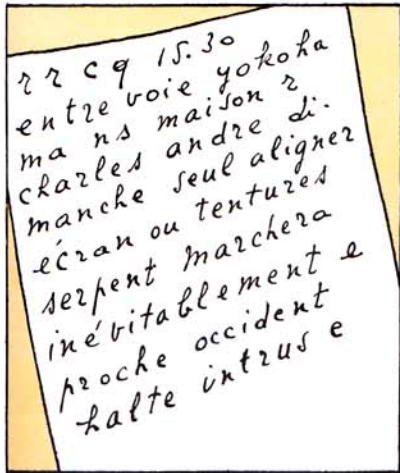 rr cq 15.30
entre voie yokoha
ma ns maison r
charles andre di.
manche seul aligner
écran ou tentures
serpent marchera
inévitablement e
proche occident
halte intrus e